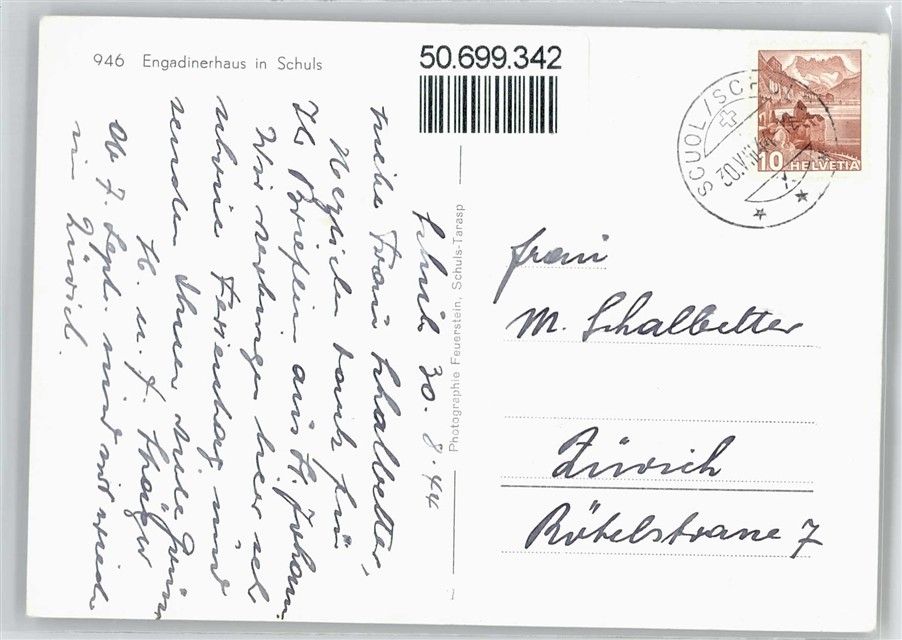 946 Engadinerhaus in Schuls
50.699.342
SCUOL/SCHULS
30.VIII.44
10 HELVETIA
Photographie Feuerstein, Schuls-Tarasp
Schuls 30. 8. 44
Liebe Frau Schalbetter,
Herzlichen Dank für
Ihr Brieflein aus St. Johann
Wir verbringen hier
Ferientag und
senden Ihnen viele
H. u. F.
Ab 7. Sept. sind wir wieder
in Zürich.
Frau
M. Schalbetter
Zürich
Rötelstrasse 7